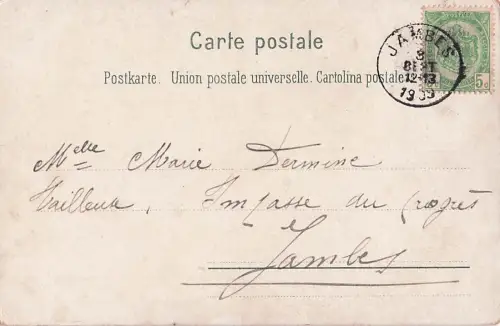 Carte postale
Postkarte. Union postale universelle. Cartolina postale
JAMBES
8
SEPT
12-13
1903
5c
Melle Marie Dermine
Tailleur, Impasse du progrès
Jambes